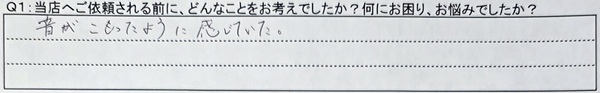 Q1:当店へご依頼される前に、どんなことをお考えでしたか?何にお困り、お悩みでしたか?
音がこもったように感じていた。